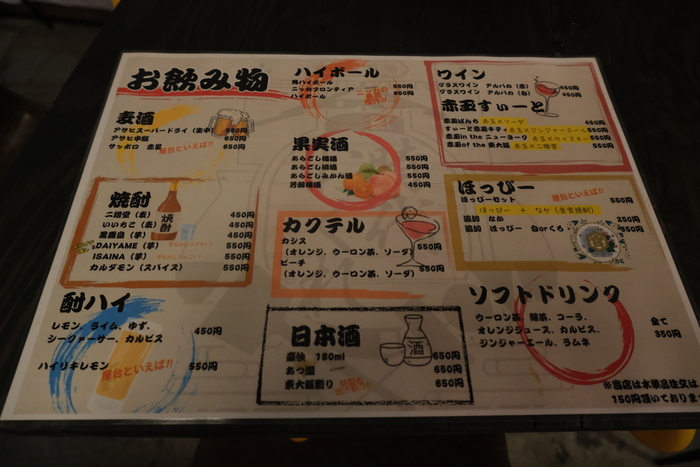 お飲み物
麦酒
アサヒスーパードライ（生中） 550円
アサヒ中瓶 650円
サッポロ 赤星 650円
屋台といえば!!
焼酎
二階堂（麦） 450円
いいちこ（麦） 450円
黒霧島（芋） 450円
DAIYAME（芋） 550円
ISAINA（芋） 550円
カルダモン（スパイス） 550円
焼酎
酎ハイ
レモン、ライム、ゆず、
シークァーサー、カルピス 450円
ハイリキレモン 550円
屋台といえば!!
ハイボール
角ハイボール 550円
ニッカフロンティア 650円
ハイボール
果実酒
あらごし梅酒 550円
あらごし桃酒 550円
あらごしみかん酒 550円
芳醇梅酒 450円
カクテル
カシス
（オレンジ、ウーロン茶、ソーダ） 550円
ピーチ
（オレンジ、ウーロン茶、ソーダ） 550円
日本酒
180ml 650円
あつ燗 650円
東大阪割り 650円
酒
ワイン
グラスワイン アルパカ（赤） 450円
グラスワイン アルパカ（白） 450円
赤玉すいーと
赤玉ぱんち 赤玉×ソーダ
すいーと赤玉キティ 赤玉×ジンジャーエール 550円
赤玉in the ニューヨーク 赤玉×ウイスキー 550円
赤玉of the 東大阪 赤玉×二階堂 550円
ほっぴー
屋台といえば!!
ほっぴーセット 550円
ほっぴー + なか（金宮焼酎）
追加 なか 250円
追加 ほっぴー 白orくろ 350円
ソフトドリンク
ウーロン茶、緑茶、コーラ、
オレンジジュース、カルピス、
ジンジャーエール、ラムネ
全て
350円